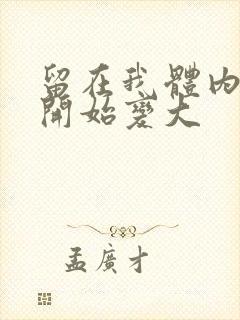 留在我體內
開始變大
孟廣才